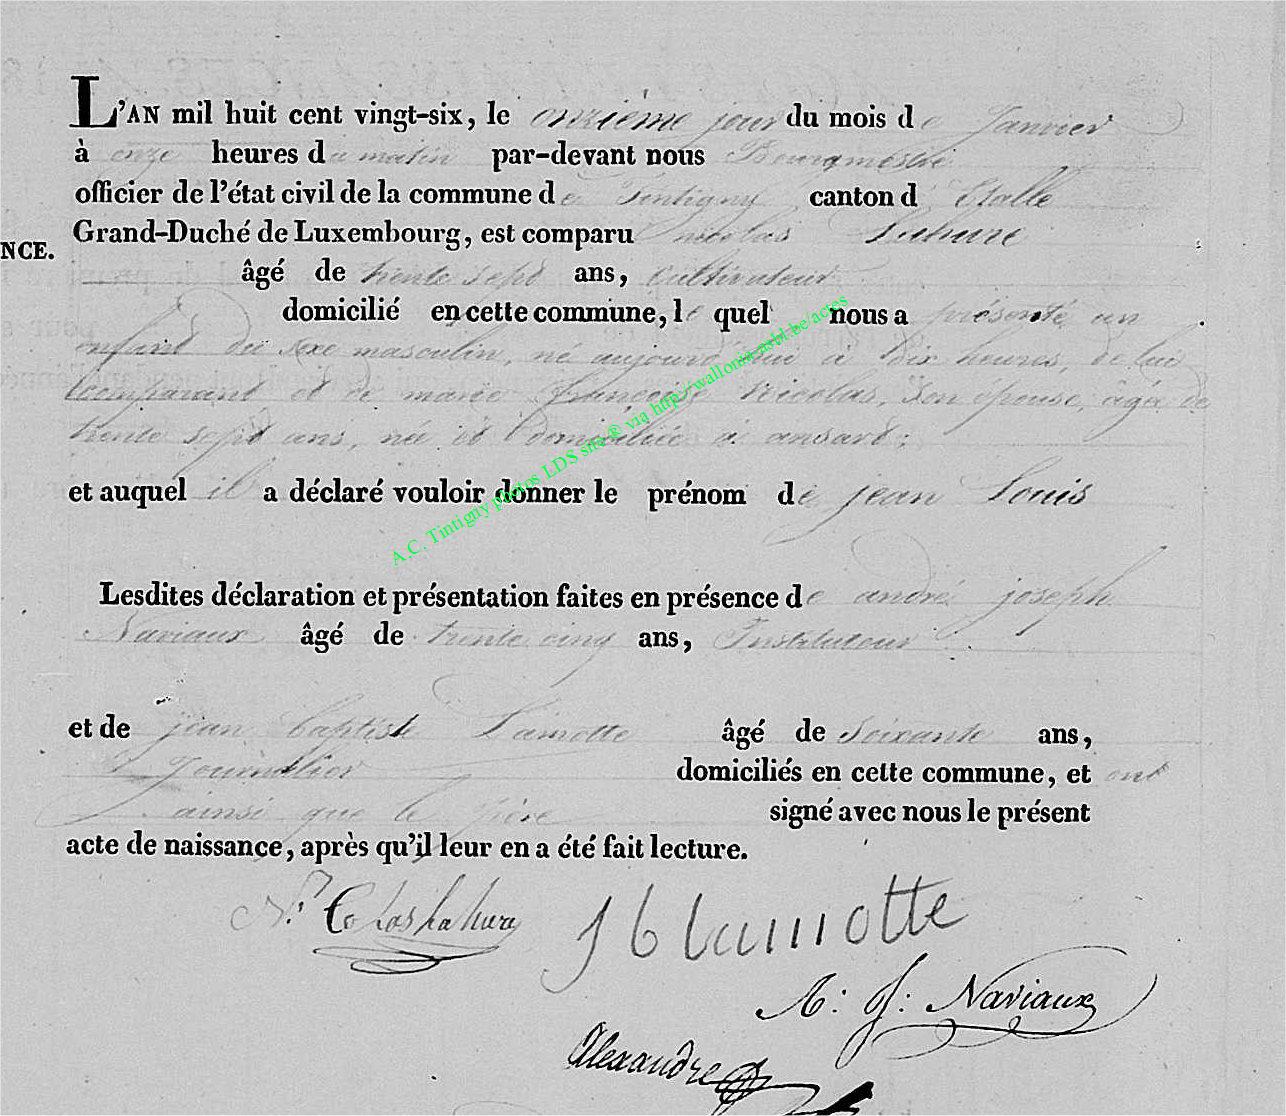 L'AN mil huit cent vingt-six, le onzième jour du mois de Janvier
à onze heures du matin par-devant nous Bourgmestre
officier de l'état civil de la commune de Tintigny canton d'Etalle
Grand-Duché de Luxembourg, est comparu Nicolas Lahure
NCE.
âgé de trente sept ans, cultivateur
domicilié en cette commune, le quel nous a présenté un
enfant du sexe masculin, né aujourd'hui à dix heures, de lui
comparant et de marie françoise Nicolas, son épouse, âgée de
trente sept ans, née et domiciliée à ansart;
et auquel il a déclaré vouloir donner le prénom de jean Louis
Lesdites déclaration et présentation faites en présence de andré joseph
Naviaux âgé de trente cinq ans, Instituteur
et de jean baptiste Lamotte âgé de soixante ans,
Journalier domiciliés en cette commune, et ont
ainsi que le père signé avec nous le présent
acte de naissance, après qu'il leur en a été fait lecture.
Lahure
J b lamotte
A: J: Naviaux
Alexandre
A.C. Tintigny photos LDS site ® via http://wallonia-asbl.be/actes